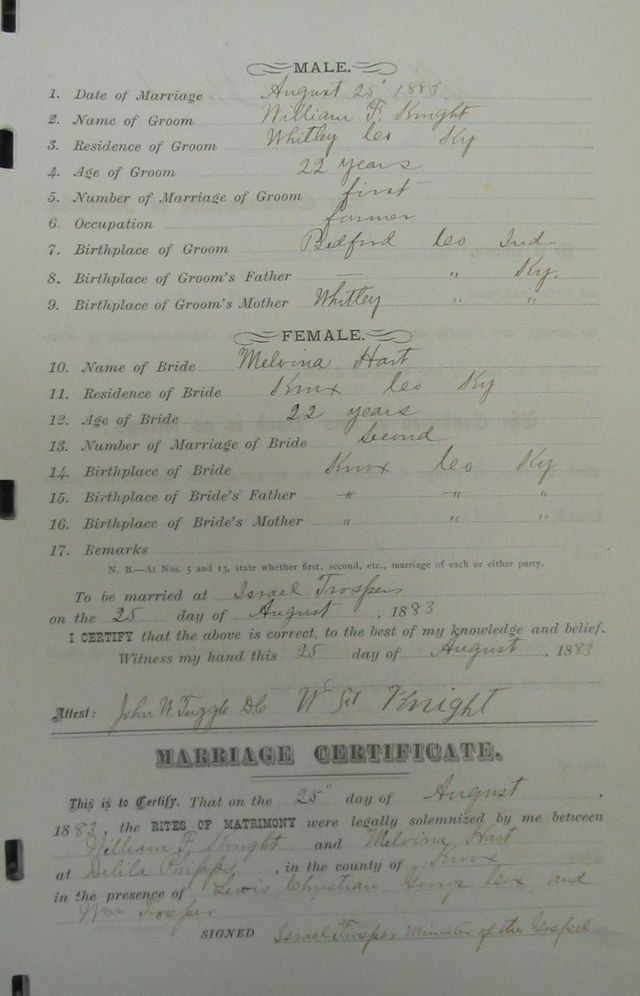 MALE.
1. Date of Marriage August 25" 1883.
2. Name of Groom William F. Knight
3. Residence of Groom Whitley Co Ky
4. Age of Groom 22 years
5. Number of Marriage of Groom first
6. Occupation farmer
7. Birthplace of Groom Bedford Co Ind
8. Birthplace of Groom's Father — " Ky.
9. Birthplace of Groom's Mother Whitley " "
FEMALE.
10. Name of Bride Melvina Hart
11. Residence of Bride Knox Co Ky
12. Age of Bride 22 years
13. Number of Marriage of Bride Second
14. Birthplace of Bride Knox Co Ky
15. Birthplace of Bride's Father " " "
16. Birthplace of Bride's Mother " " "
17. Remarks
N. B.—At Nos. 5 and 13, state whether first, second, etc., marriage of each or either party.
To be married at Israel Trospers
on the 25 day of August, 1883
I CERTIFY that the above is correct, to the best of my knowledge and belief.
Witness my hand this 25 day of August, 1883
Attest: John W. Tuggle DC Knight
MARRIAGE CERTIFICATE.
This is to Certify, That on the 25" day of August,
1883, the RITES OF MATRIMONY were legally solemnized by me between
William F. Knight and Melvina Hart
at Delila Phipps, in the county of Knox
in the presence of Lewis Christian George Cox and
Wm Trosper
SIGNED Israel Trosper Minister of the Gospel